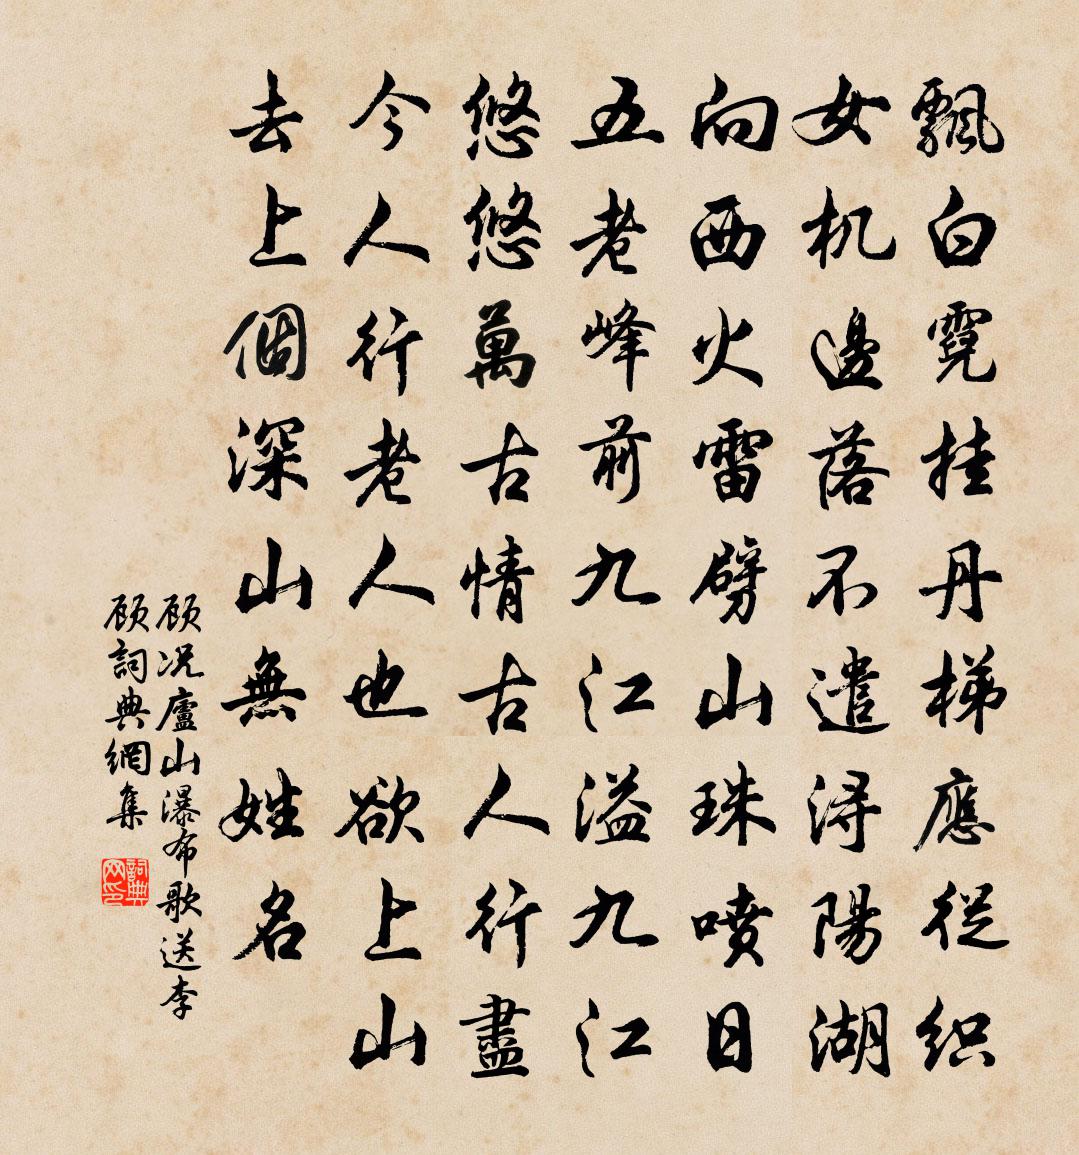 飄白霓挂丹梯應從織
女机邊落不遣潯陽湖
向西火雷劈山珠噴日
五老峰前九江溢九江
悠悠萬古情古人行盡
今人行老人也欲上山
去上個深山無姓名
顾况廬山瀑布歌送李
顾詞典網集
詞典网印